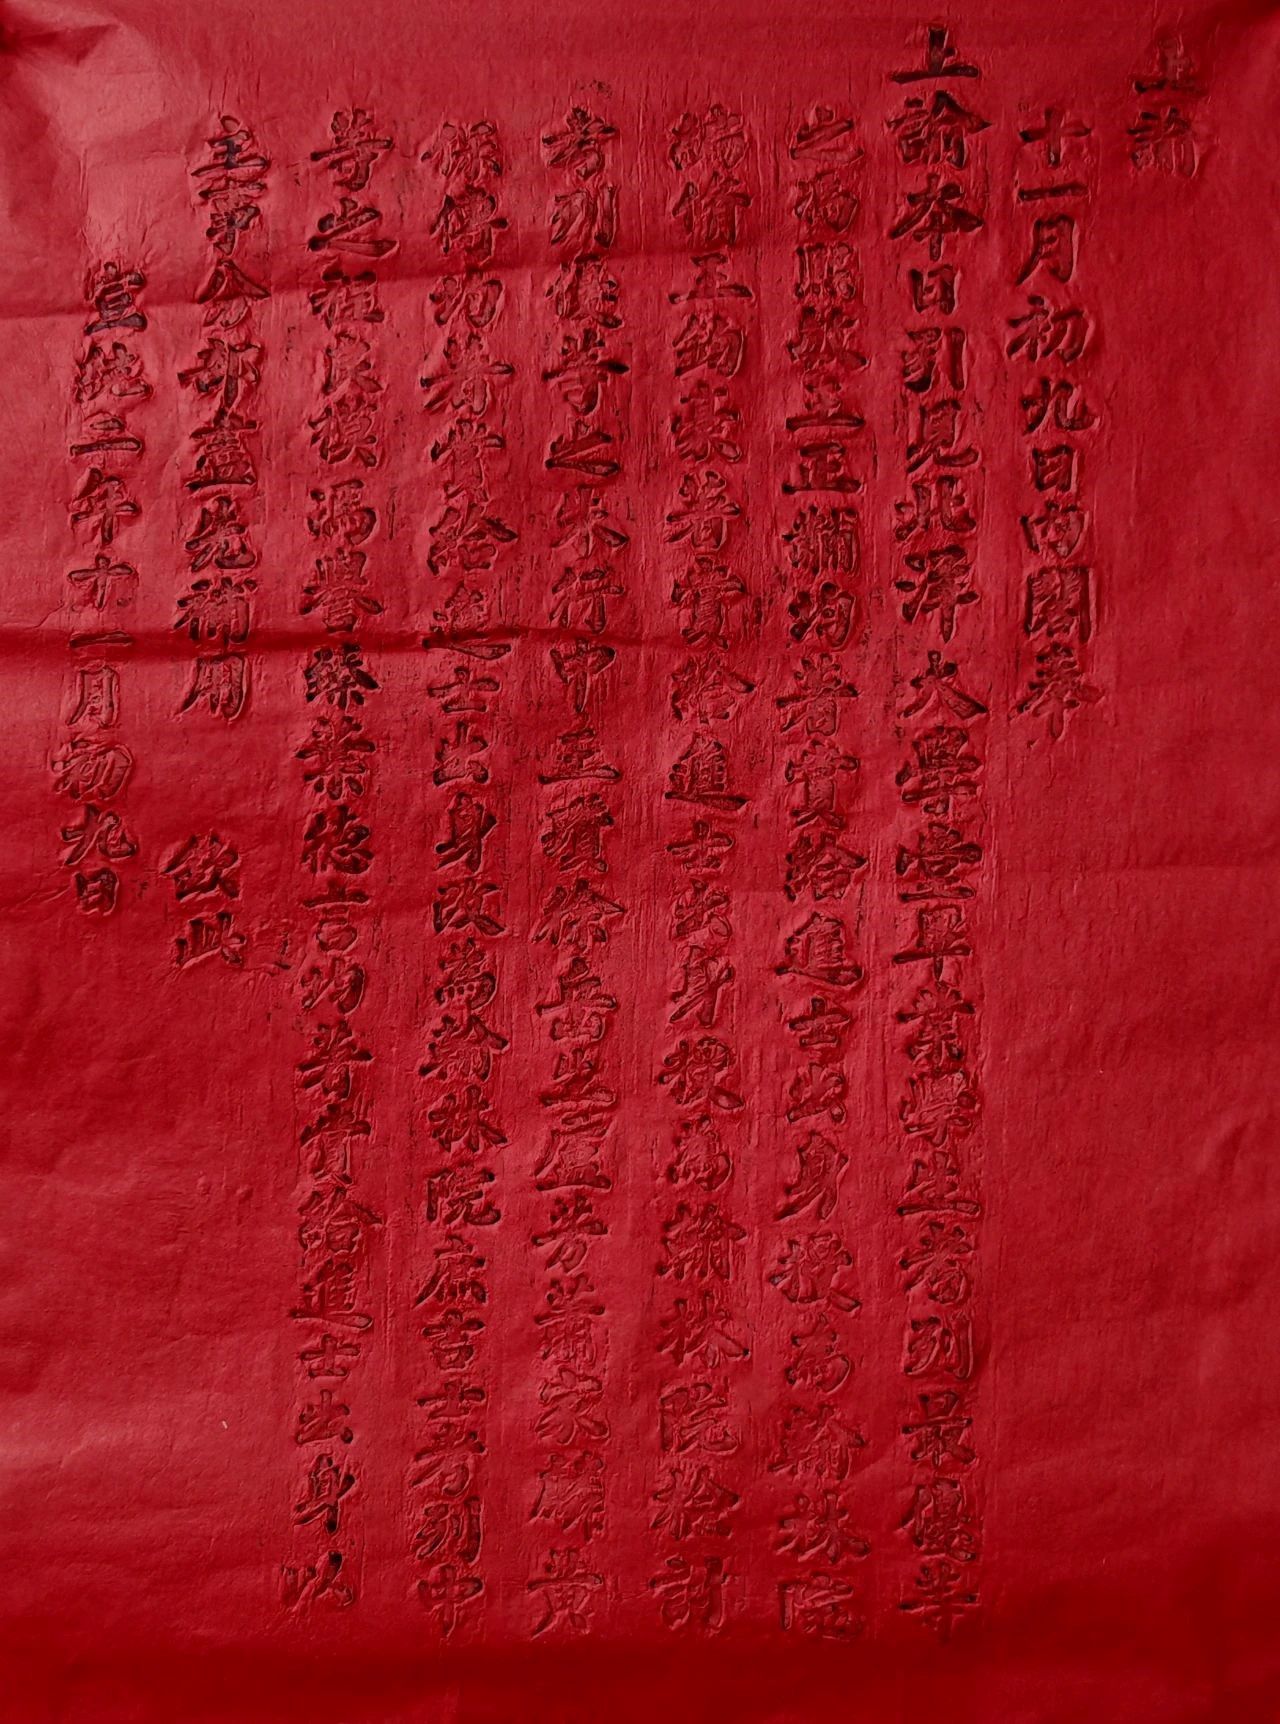 上諭
十一月初九日內閣奉
上諭本日引見北洋大學堂畢業學生考列最優等
之馮熙敏王正黼均著賞給進士出身授為翰林院
編修王鈞豪著賞給進士出身授為翰林院檢討
考列優等之朱行中王瓚徐岳生 芳蕭家麟黃
保傳均著賞給進士出身改為翰林院庶吉士考列中
等之 良模馮譽臻葉德言均著賞給進士出身以
主事分部盡先補用 欽此
宣統二年十一月初九日